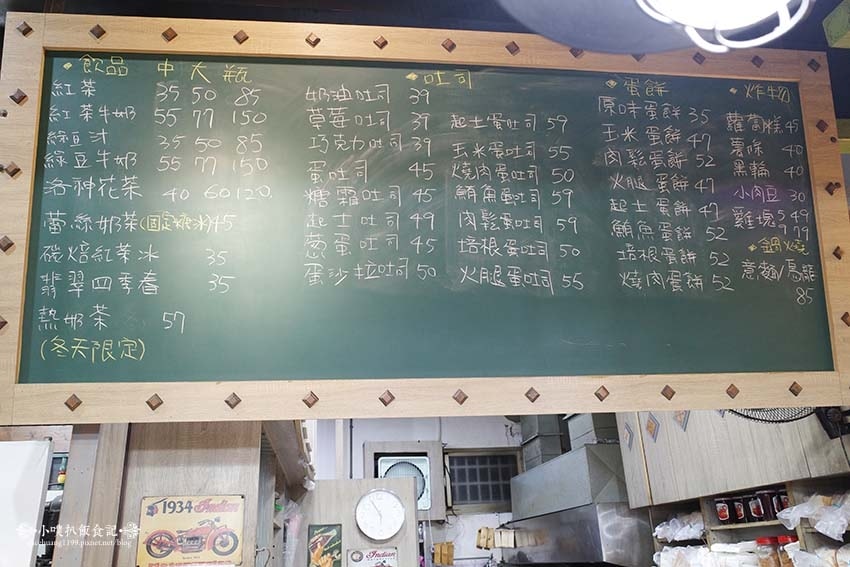 飲品 中 大 瓶
紅茶 35 50 85
紅茶牛奶 55 77 150
綠豆汁 35 50 85
綠豆牛奶 55 77 150
洛神花茶 40 60 120
蕾絲奶茶(固定糖冰)45
碳焙紅茶冰 35
翡翠四季春 35
熱奶茶 57
(冬天限定)
吐司
奶油吐司 39
草莓吐司 39
巧克力吐司 39
蛋吐司 45
糖霜吐司 45
起士吐司 49
蔥蛋吐司 45
蛋沙拉吐司 50
起士蛋吐司 59
玉米蛋吐司 55
燒肉蛋吐司 50
鮪魚蛋吐司 59
肉鬆蛋吐司 59
培根蛋吐司 50
火腿蛋吐司 55
蛋餅
原味蛋餅 35
玉米蛋餅 47
肉鬆蛋餅 52
火腿蛋餅 47
起士蛋餅 47
鮪魚蛋餅 52
培根蛋餅 52
燒肉蛋餅 52
炸物
蘿蔔糕 45
薯條 40
黑輪 40
小肉豆 30
雞塊 5 49
9 79
鍋燒
意麵/烏龍
85
1934 Indian
Indian
小噴趴飯食記